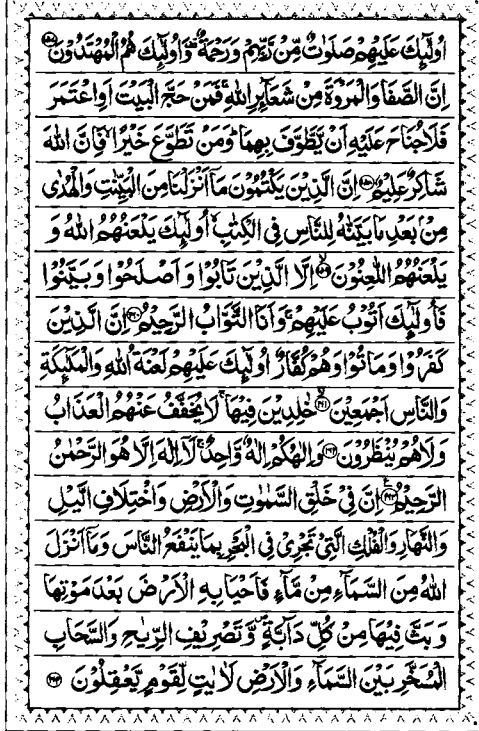 اُولٰٓئِكَ عَلَيْهِمْ صَلَوٰتٌ مِّنْ رَّبِّهِمْ وَرَحْمَةٌ وَاُولٰٓئِكَ هُمُ الْمُهْتَدُوْنَ ﴿۱۵۷﴾
اِنَّ الصَّفَا وَالْمَرْوَةَ مِنْ شَعَآئِرِ اللّٰهِ ۚ فَمَنْ حَجَّ الْبَيْتَ اَوِ اعْتَمَرَ
فَلَا جُنَاحَ عَلَيْهِ اَنْ يَّطَّوَّفَ بِهِمَا ؕ وَمَنْ تَطَوَّعَ خَيْرًا ۙ فَاِنَّ اللّٰهَ
شَاكِرٌ عَلِيْمٌ ﴿۱۵۸﴾ اِنَّ الَّذِيْنَ يَكْتُمُوْنَ مَاۤ اَنْزَلْنَا مِنَ الْبَيِّنٰتِ وَالْهُدٰى
مِنْۢ بَعْدِ مَا بَيَّنّٰهُ لِلنَّاسِ فِى الْكِتٰبِ ۙ اُولٰٓئِكَ يَلْعَنُهُمُ اللّٰهُ وَ
يَلْعَنُهُمُ اللّٰعِنُوْنَ ﴿۱۵۹﴾ اِلَّا الَّذِيْنَ تَابُوْا وَاَصْلَحُوْا وَبَيَّنُوْا
فَاُولٰٓئِكَ اَتُوْبُ عَلَيْهِمْ ۚ وَاَنَا التَّوَّابُ الرَّحِيْمُ ﴿۱۶۰﴾ اِنَّ الَّذِيْنَ
كَفَرُوْا وَمَاتُوْا وَهُمْ كُفَّارٌ اُولٰٓئِكَ عَلَيْهِمْ لَعْنَةُ اللّٰهِ وَالْمَلٰٓئِكَةِ
وَالنَّاسِ اَجْمَعِيْنَ ﴿۱۶۱﴾ خٰلِدِيْنَ فِيْهَا ۚ لَا يُخَفَّفُ عَنْهُمُ الْعَذَابُ
وَلَا هُمْ يُنْظَرُوْنَ ﴿۱۶۲﴾ وَاِلٰهُكُمْ اِلٰهٌ وَّاحِدٌ ۚ لَاۤ اِلٰهَ اِلَّا هُوَ الرَّحْمٰنُ
الرَّحِيْمُ ﴿۱۶۳﴾ اِنَّ فِىْ خَلْقِ السَّمٰوٰتِ وَالْاَرْضِ وَاخْتِلَافِ الَّيْلِ
وَالنَّهَارِ وَالْفُلْكِ الَّتِىْ تَجْرِىْ فِى الْبَحْرِ بِمَا يَنْفَعُ النَّاسَ وَمَاۤ اَنْزَلَ
اللّٰهُ مِنَ السَّمَآءِ مِنْ مَّآءٍ فَاَحْيَا بِهِ الْاَرْضَ بَعْدَ مَوْتِهَا
وَبَثَّ فِيْهَا مِنْ كُلِّ دَآبَّةٍ ۪ وَّتَصْرِيْفِ الرِّيٰحِ وَالسَّحَابِ
الْمُسَخَّرِ بَيْنَ السَّمَآءِ وَالْاَرْضِ لَاٰيٰتٍ لِّقَوْمٍ يَّعْقِلُوْنَ ﴿۱۶۴﴾